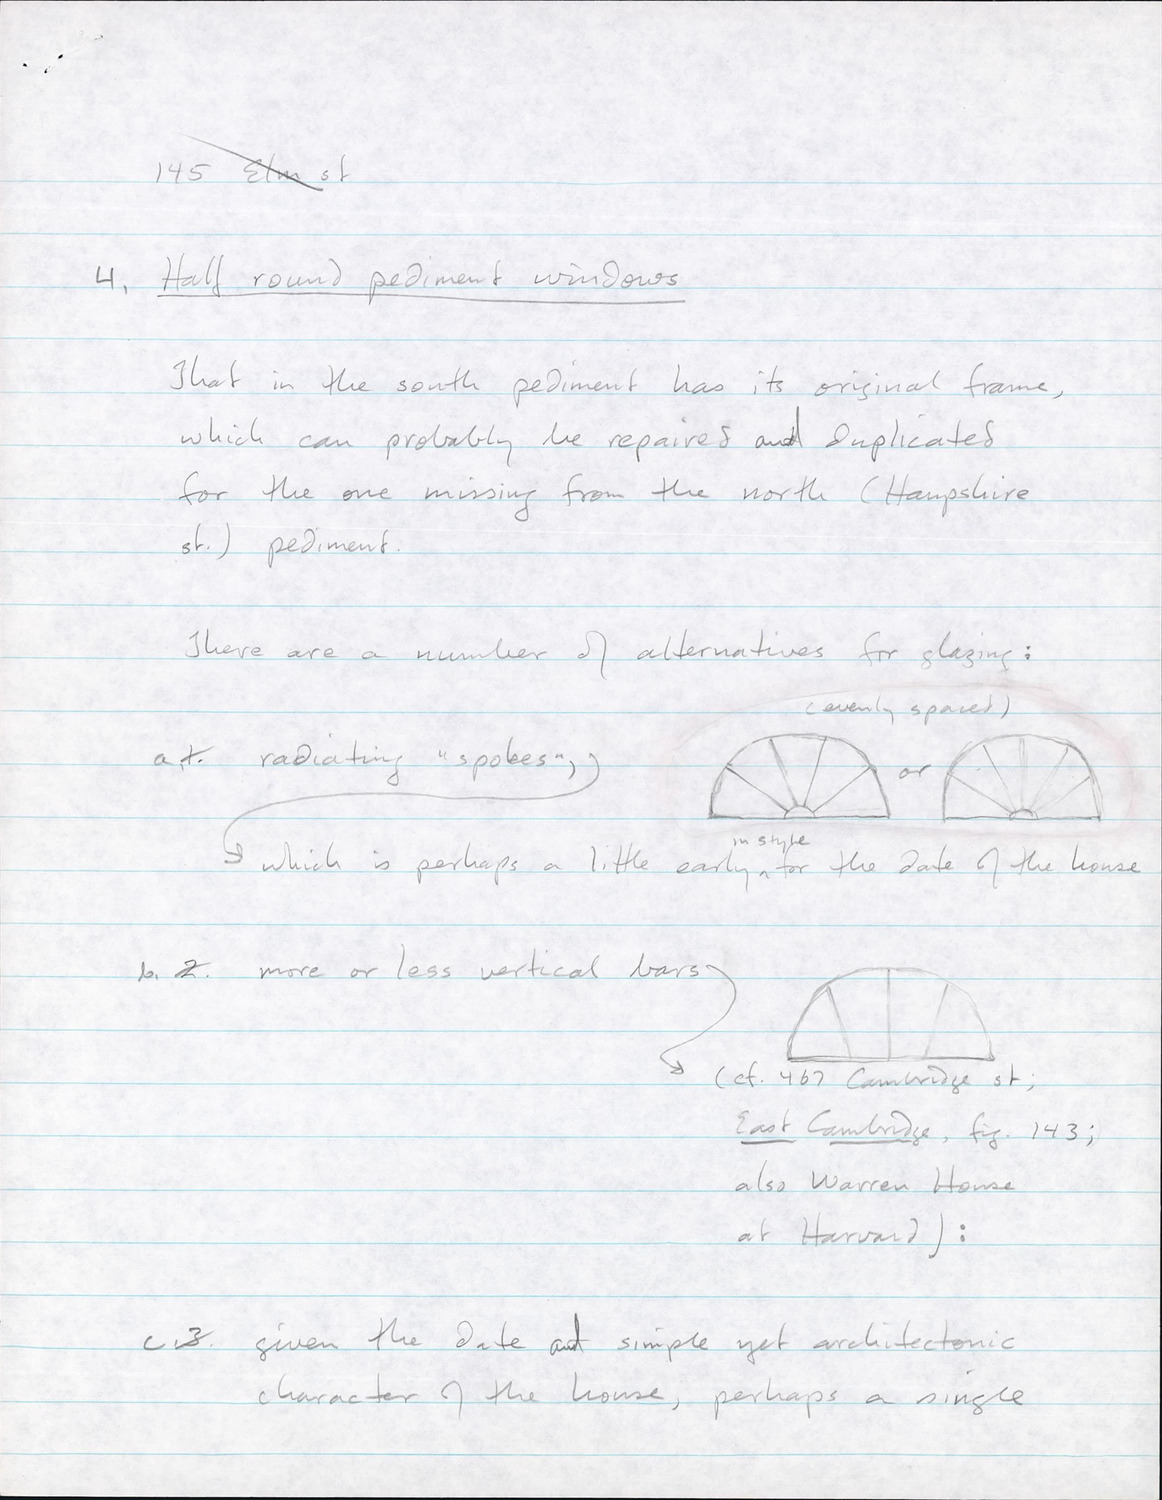 145 Elm st
4. Half round pediment windows
That in the south pediment has its original frame,
which can probably be repaired and duplicated
for the one missing from the north (Hampshire
st.) pediment.
There are a number of alternatives for glazing:
(evenly spaced)
a. 1. radiating "spokes",
or
in style
which is perhaps a little early ‸ for the date of the house
b. 2. more or less vertical bars
(cf. 467 Cambridge st;
East Cambridge, fig. 143;
also Warren House
at Harvard):
c. 3. given the date and simple yet architectonic
character of the house, perhaps a single